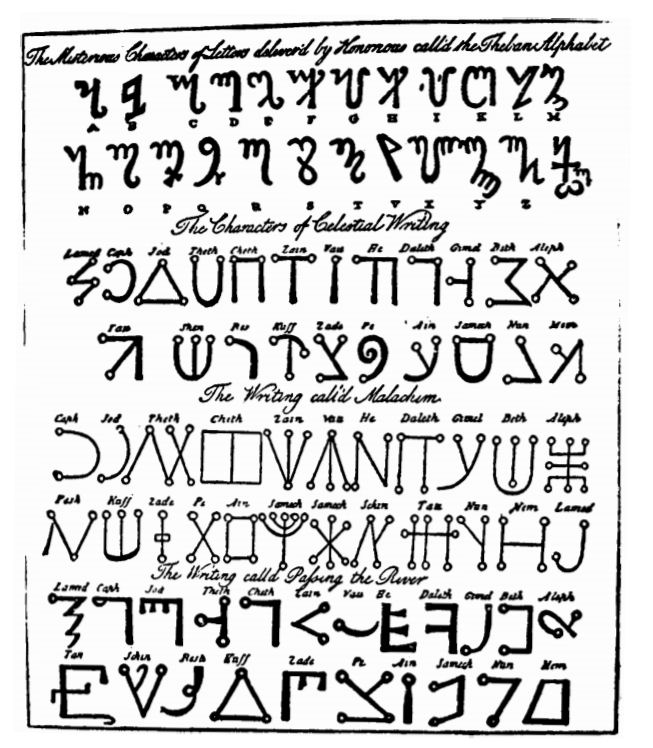 The Misterious Characters of Letters deliver'd by Honorious call'd the Theban Alphabet
A B C D E F G H I K L M
N O P Q R S T V X Y Z
The Characters of Celestial Writing
Lamed Caph Jod Theth Cheth Zain Vau He Daleth Gimel Beth Aleph
Tau Shen Res Kuff Zade Pe Ain Samech Nun Mem
The Writing call'd Malachim
Caph Jod Theth Cheth Zain Vau He Daleth Gimel Beth Aleph
Resh Kuff Zade Pe Ain Samech Samech Schin Tau Nun Mem Lamed
The Writing call'd Passing the River
Lamed Caph Jod Theth Cheth Zain Vau He Daleth Gimel Beth Aleph
Tau Schin Resh Kuff Zade Pe Ain Samech Nun Mem